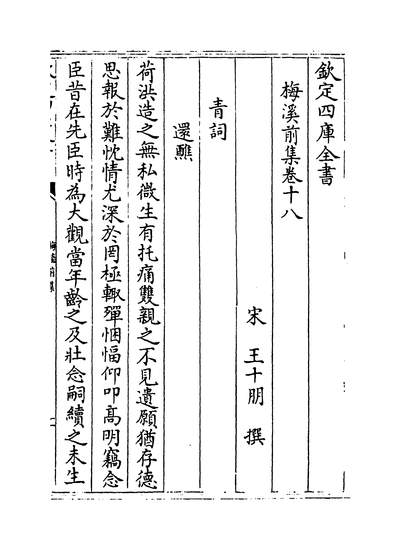 欽定四庫全書
梅溪前集卷十八
宋　王十朋　撰
青詞
還醮
荷洪造之無私微生有托痛雙親之不見遺願猶存德
思報於難忱情尤深於罔極輙殫悃愊仰叩高明竊念
臣昔在先臣時為大觀當年齡之及壯念嗣續之未生